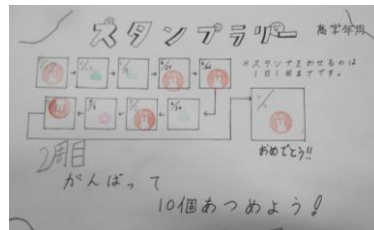 スタンプラリー 高学年用
※スタンプをおせるのは
1日1個までです。
おめでとう!!
2周目
がんばって
10個あつめよう!